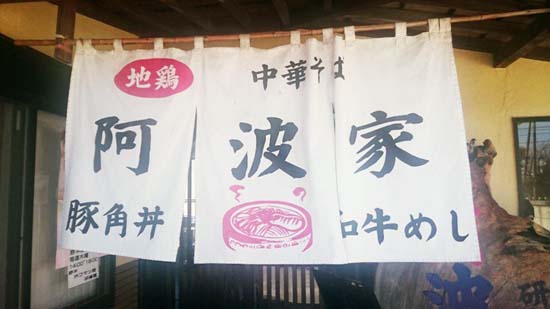 地鶏
中華そば
阿波家
豚角丼
和牛めし
波
研